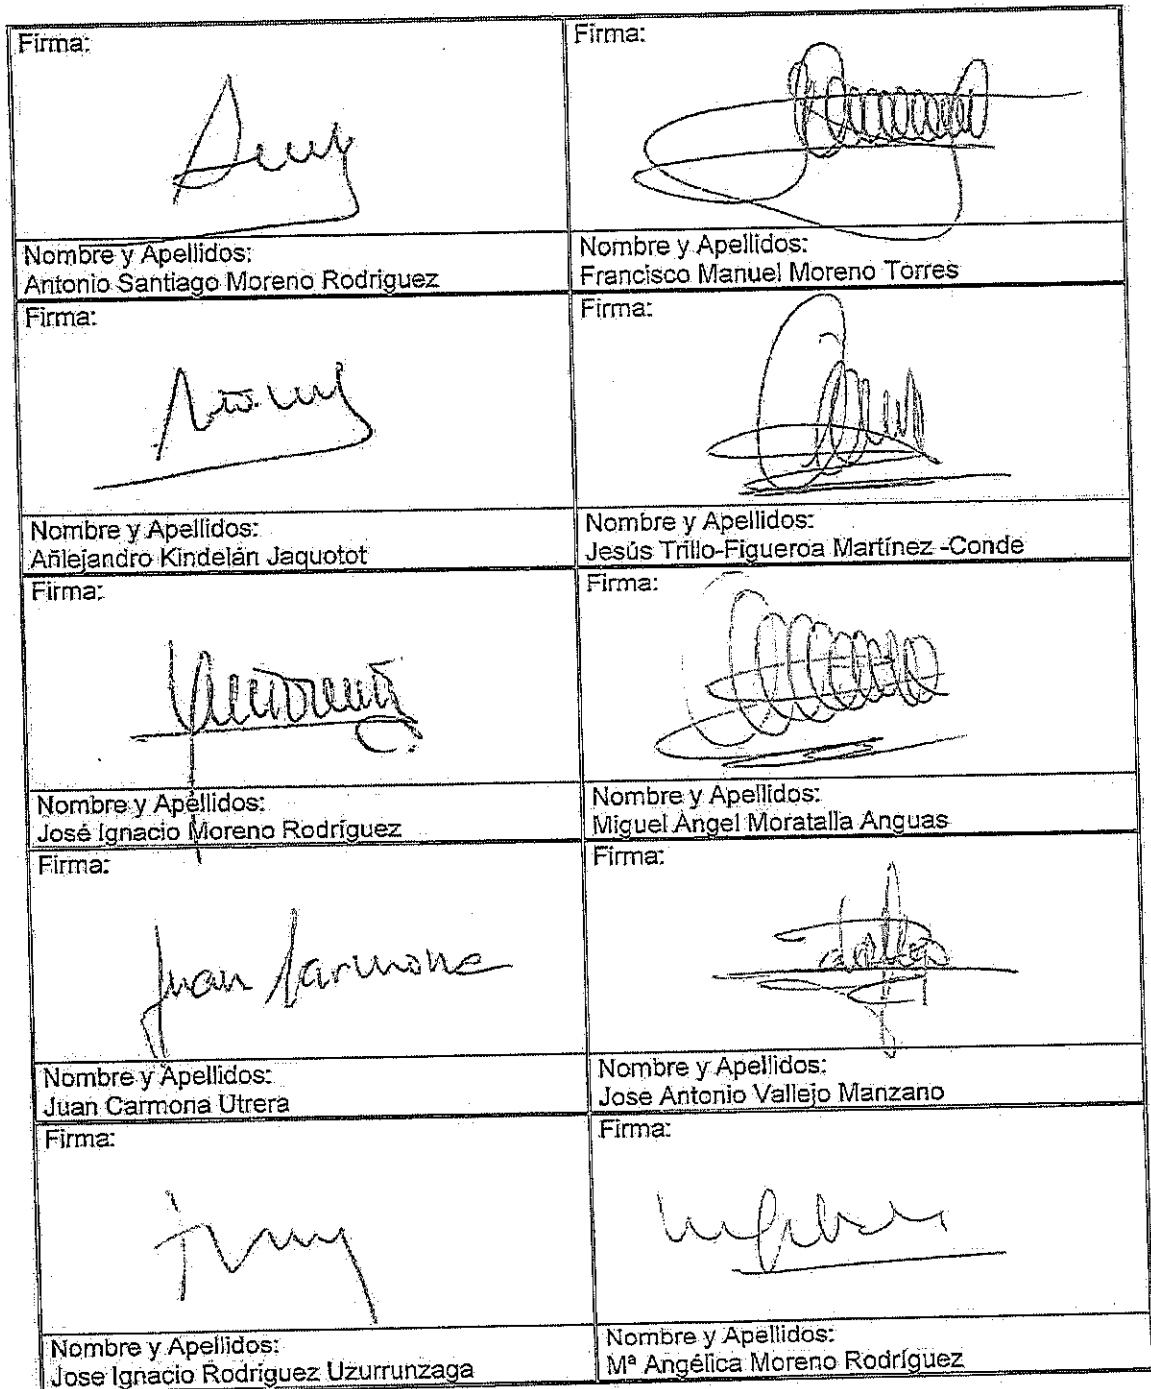 Firma:
Firma:
Nombre y Apellidos:
Antonio Santiago Moreno Rodriguez
Nombre y Apellidos:
Francisco Manuel Moreno Torres
Firma:
Firma:
Nombre y Apellidos:
Añlejandro Kindelán Jaquotot
Nombre y Apellidos:
Jesús Trillo-Figueroa Martínez -Conde
Firma:
Firma:
Nombre y Apellidos:
José Ignacio Moreno Rodríguez
Nombre y Apellidos:
Miguel Ángel Moratalla Anguas
Firma:
Juan Carmona
Firma:
Nombre y Apellidos:
Juan Carmona Utrera
Nombre y Apellidos:
Jose Antonio Vallejo Manzano
Firma:
Firma:
Nombre y Apellidos:
Jose Ignacio Rodriguez Uzurrunzaga
Nombre y Apellidos:
Mª Angélica Moreno Rodríguez